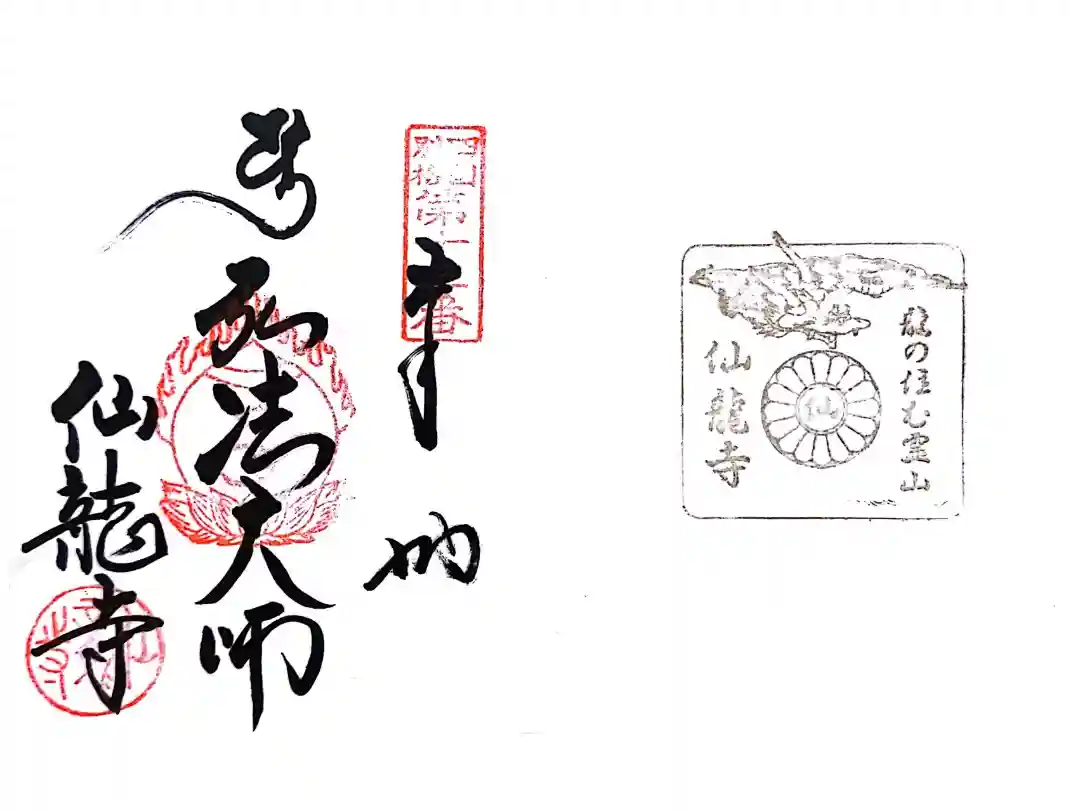 四国
別格
第十三番
奉納
弘法大師
仙龍寺
龍の住む霊山
仙
仙龍寺